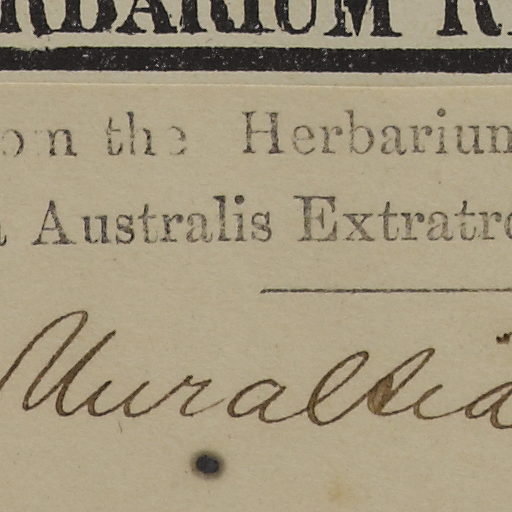 RBARIUM R
om the Herbarium
a Australis Extratro
Muraltia